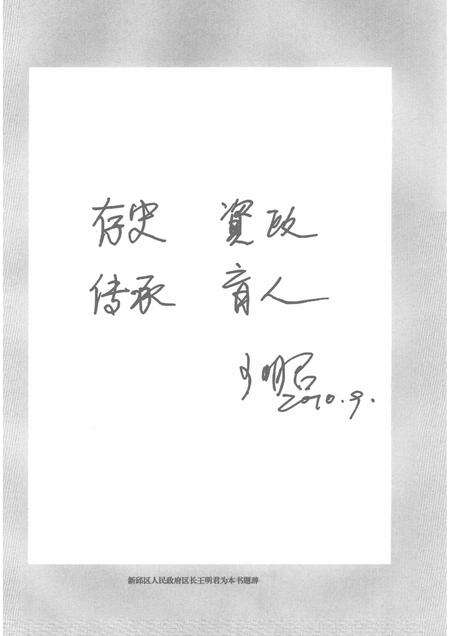 存史 资政
传承 育人
王明君
2010.9.
新邱区人民政府区长王明君为本书题辞